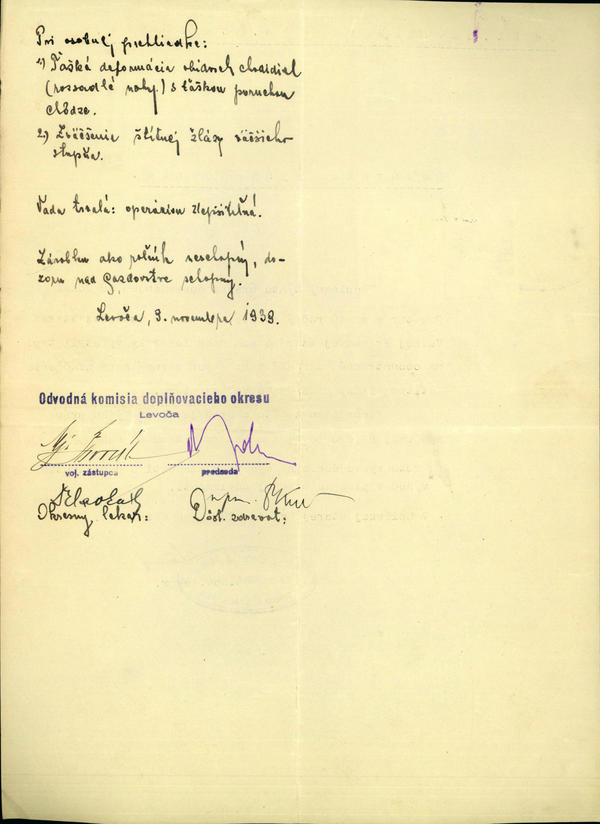 Pri osobnej prehliadke:
1) Ťažká deformácia obidvoch chodidiel
(rozsadlé nohy) s ťažkou poruchou
chôdze.
2.) Zväčšenie štítnej žľazy väčšieho
stupňa.
Vada trvalá: operáciou zlepšiteľná.
Zárobku ako roľník neschopný, do-
zoru nad gazdovstve schopný.
Levoča, 3. novembra 1939.
Odvodná komisia doplňovacieho okresu
Levoča
voj. zástupca
predseda
Okresný lekár:
Dôst. zdravot.: